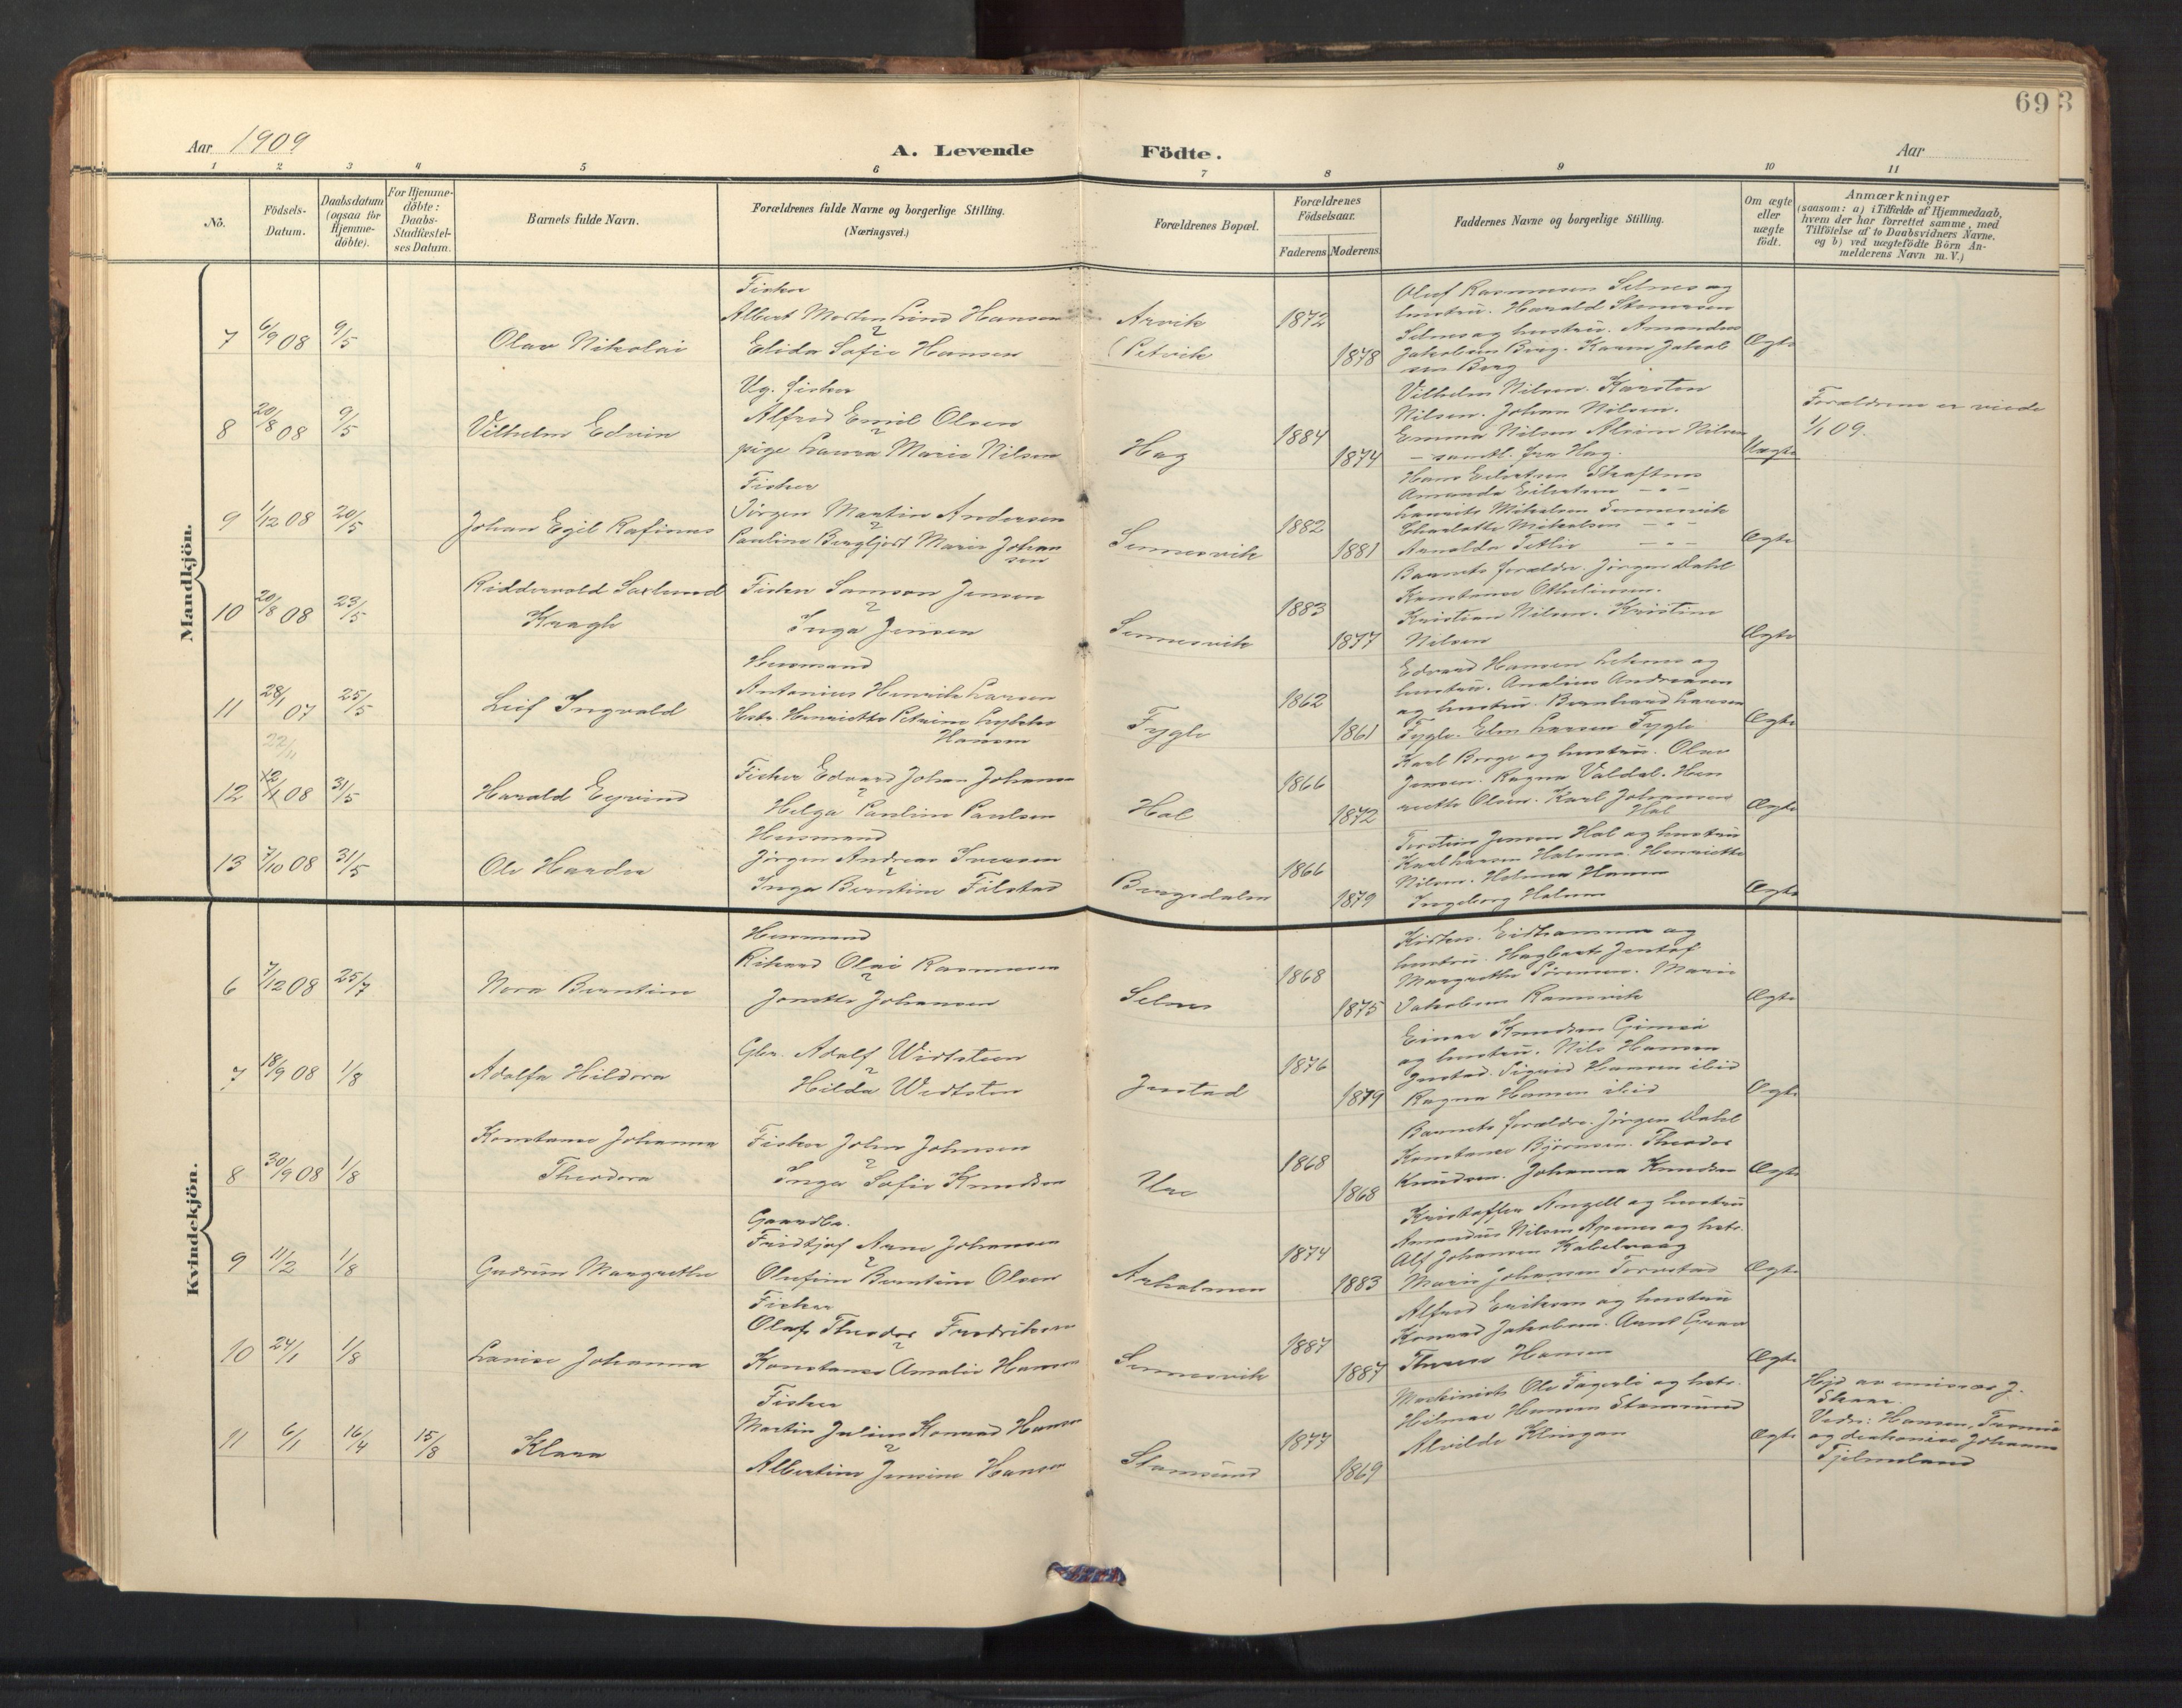 693
Aar 1909
A. Levende Födte.
Aar
1 2 3 4 5 6 7 8 9 10 11
No.
Födsels-
Datum.
Daabsdatum
(ogsaa for
Hjemme-
döbte).
For Hjemme-
döbte:
Daabs-
Stadfæstel-
ses Datum.
Barnets fulde Navn.
Forældrenes fulde Navne og borgerlige Stilling.
(Næringsvei.)
Forældrenes Bopæl.
Forældrenes
Födselsaar.
Faderens Moderens
Faddernes Navne og borgerlige Stilling.
Om ægte
eller
uægte
födt.
Anmærkninger
(saasom: a) i Tilfælde af Hjemmedaab,
hvem der har forrettet samme, med
Tilföielse af to Daabsvidners Navne,
og b) ved uægtefödte Börn An-
melderens Navn m. V.)
Mandkjön.
7 6/9 08 9/5
Olav Nikolai
Fisker
Albert Morten Lind Hansen
Elida Sofie Hansen
Arvik
Petvik
1872
1878
Oluf Rasmussen Selnes og
hustru. Harald Stenersen
Selnes og hustru. Amandus
Jakobsen Berg. Karen Jakob
sen Berg
Ægte
8 20/8 08 9/5
Vilhelm Edvin
Ug. fisker
Alfred Emil Olsen
pige Laura Marie Nilsen
Hag
1884
1874
Vilhelm Nilsen. Karsten
Nilsen. Johan Nilsen.
Emma Nilsen Alvine Nilsen
– samtl. fra Hag.
Uægte
Forældrene er viede
1/1 09.
9 1/12 08 20/5
Johan Egil Rafinus
Fisker
Jörgen Martin Andersen
Pauline Bergljot Marie Johan
sen
Sennesvik
1882
1881
Hans Eilertsen Skaftnes
Amanda Eilertsen – " –
Laurits Mikalsen Sennesvik
Charlotte Mikalsen – " –
Arnolda Tetlie – " –
Ægte
10 20/8 08 23/5
Riddervold Saxlund
Kragh
Fisker Samson Jensen
Inga Jensen
Sennesvik
1883
1877
Barnets forældre. Jörgen Dahl
Konstanse Othiliesen.
Kristian Nilsen. Kristine
Nilsen
Ægte
11 28/1 07 25/5
Leif Ingvald
Husmand
Antonius Henrik Larsen
Hstr. Henriette Petrine
Hansen
Fygle
1862
1861
Edvard Hansen Leknes og
hustru. Analius Andreasen
og hustru. Bernhard Larsen
Fygle. Elen Larsen Fygle
Ægte
22/11
12 12/11 08 31/5
Harald Eyvind
Fisker Edvard Johan Johansen
Helga Pauline Paulsen
Hol
1866
1872
Karl Borge og hustru. Olav
Jensen. Ragna Valdal. Hen
riette Olsen. Karl Johansen
Hol
Ægte
13 7/10 08 31/5
Ole Haarder
Husmand
Jörgen Andreas Iversen
Inga Berntine Fölstad
Bergsdalen
1866
1879
Torstein Jensen Hol og hustru
Karl Larsen Holsmo. Henriette
Nilsen. Helmer Hansen
Ingeborg Holsen
Ægte
Kvindekjön.
6 7/12 08 25/7
Nora Berntine
Husmand
Rikard Olai Rasmussen
Jonette Johansen
Selnes
1868
1875
Kirkes. Eidhammer og
hustru. Hagbart Justad.
Margrethe Sörensen. Marie
Jakobsen Ramsvik
Ægte
7 18/9 08 1/8
Adolfa Hildora
Gbr. Adolf Widsteen
Hilda Widsten
Justad
1876
1879
Einar Knudsen Gimsö
og hustru. Nils Hansen
Justad. Sigurd Hansen ibid
Ragna Hansen ibid
Ægte
8 30/9 08 1/8
Konstanse Johanna
Theodora
Fisker John Johnsen
Inga Sofie Knudsen
Ure
1868
1868
Barnets forældre. Jörgen Dahl
Konstanse Björnsen. Theodor
Knudsen. Johanna Knudsen
Ægte
9 11/2 1/8
Gudrun Margrethe
Gaardbr.
Fridtjof Arne Johansen
Olufine Berntine Olsen
Axholmen
1874
1883
Kristoffer Angell og hustru
Amandus Nilsen Apenes og hstr.
Alf Johansen Kabelvaag
Marie Johansen Torvstad
Ægte
10 24/1 1/8
Lovise Johanna
Fisker
Olaf Theodor Fredriksen
Konstanse Amalie Hansen
Sennesvik
1887
1887
Alfred Eriksen og hustru
Konrad Jakobsen. Arnt
Therese Hansen
Ægte
11 6/1 16/4 15/8
Klara
Fisker
Martin Julius Konrad Hansen
Albertine Jensine Hansen
Stamsund
1877
1869
Maskinist Ole Fagerli og hstr.
Hilmar Hansen Stamsund
Alvilde Klingan
Ægte
Hjd av emissær J.
Skaar.
Vidn: Hansen, Tromsö
og diakonisse Johanne
Fjelmeland